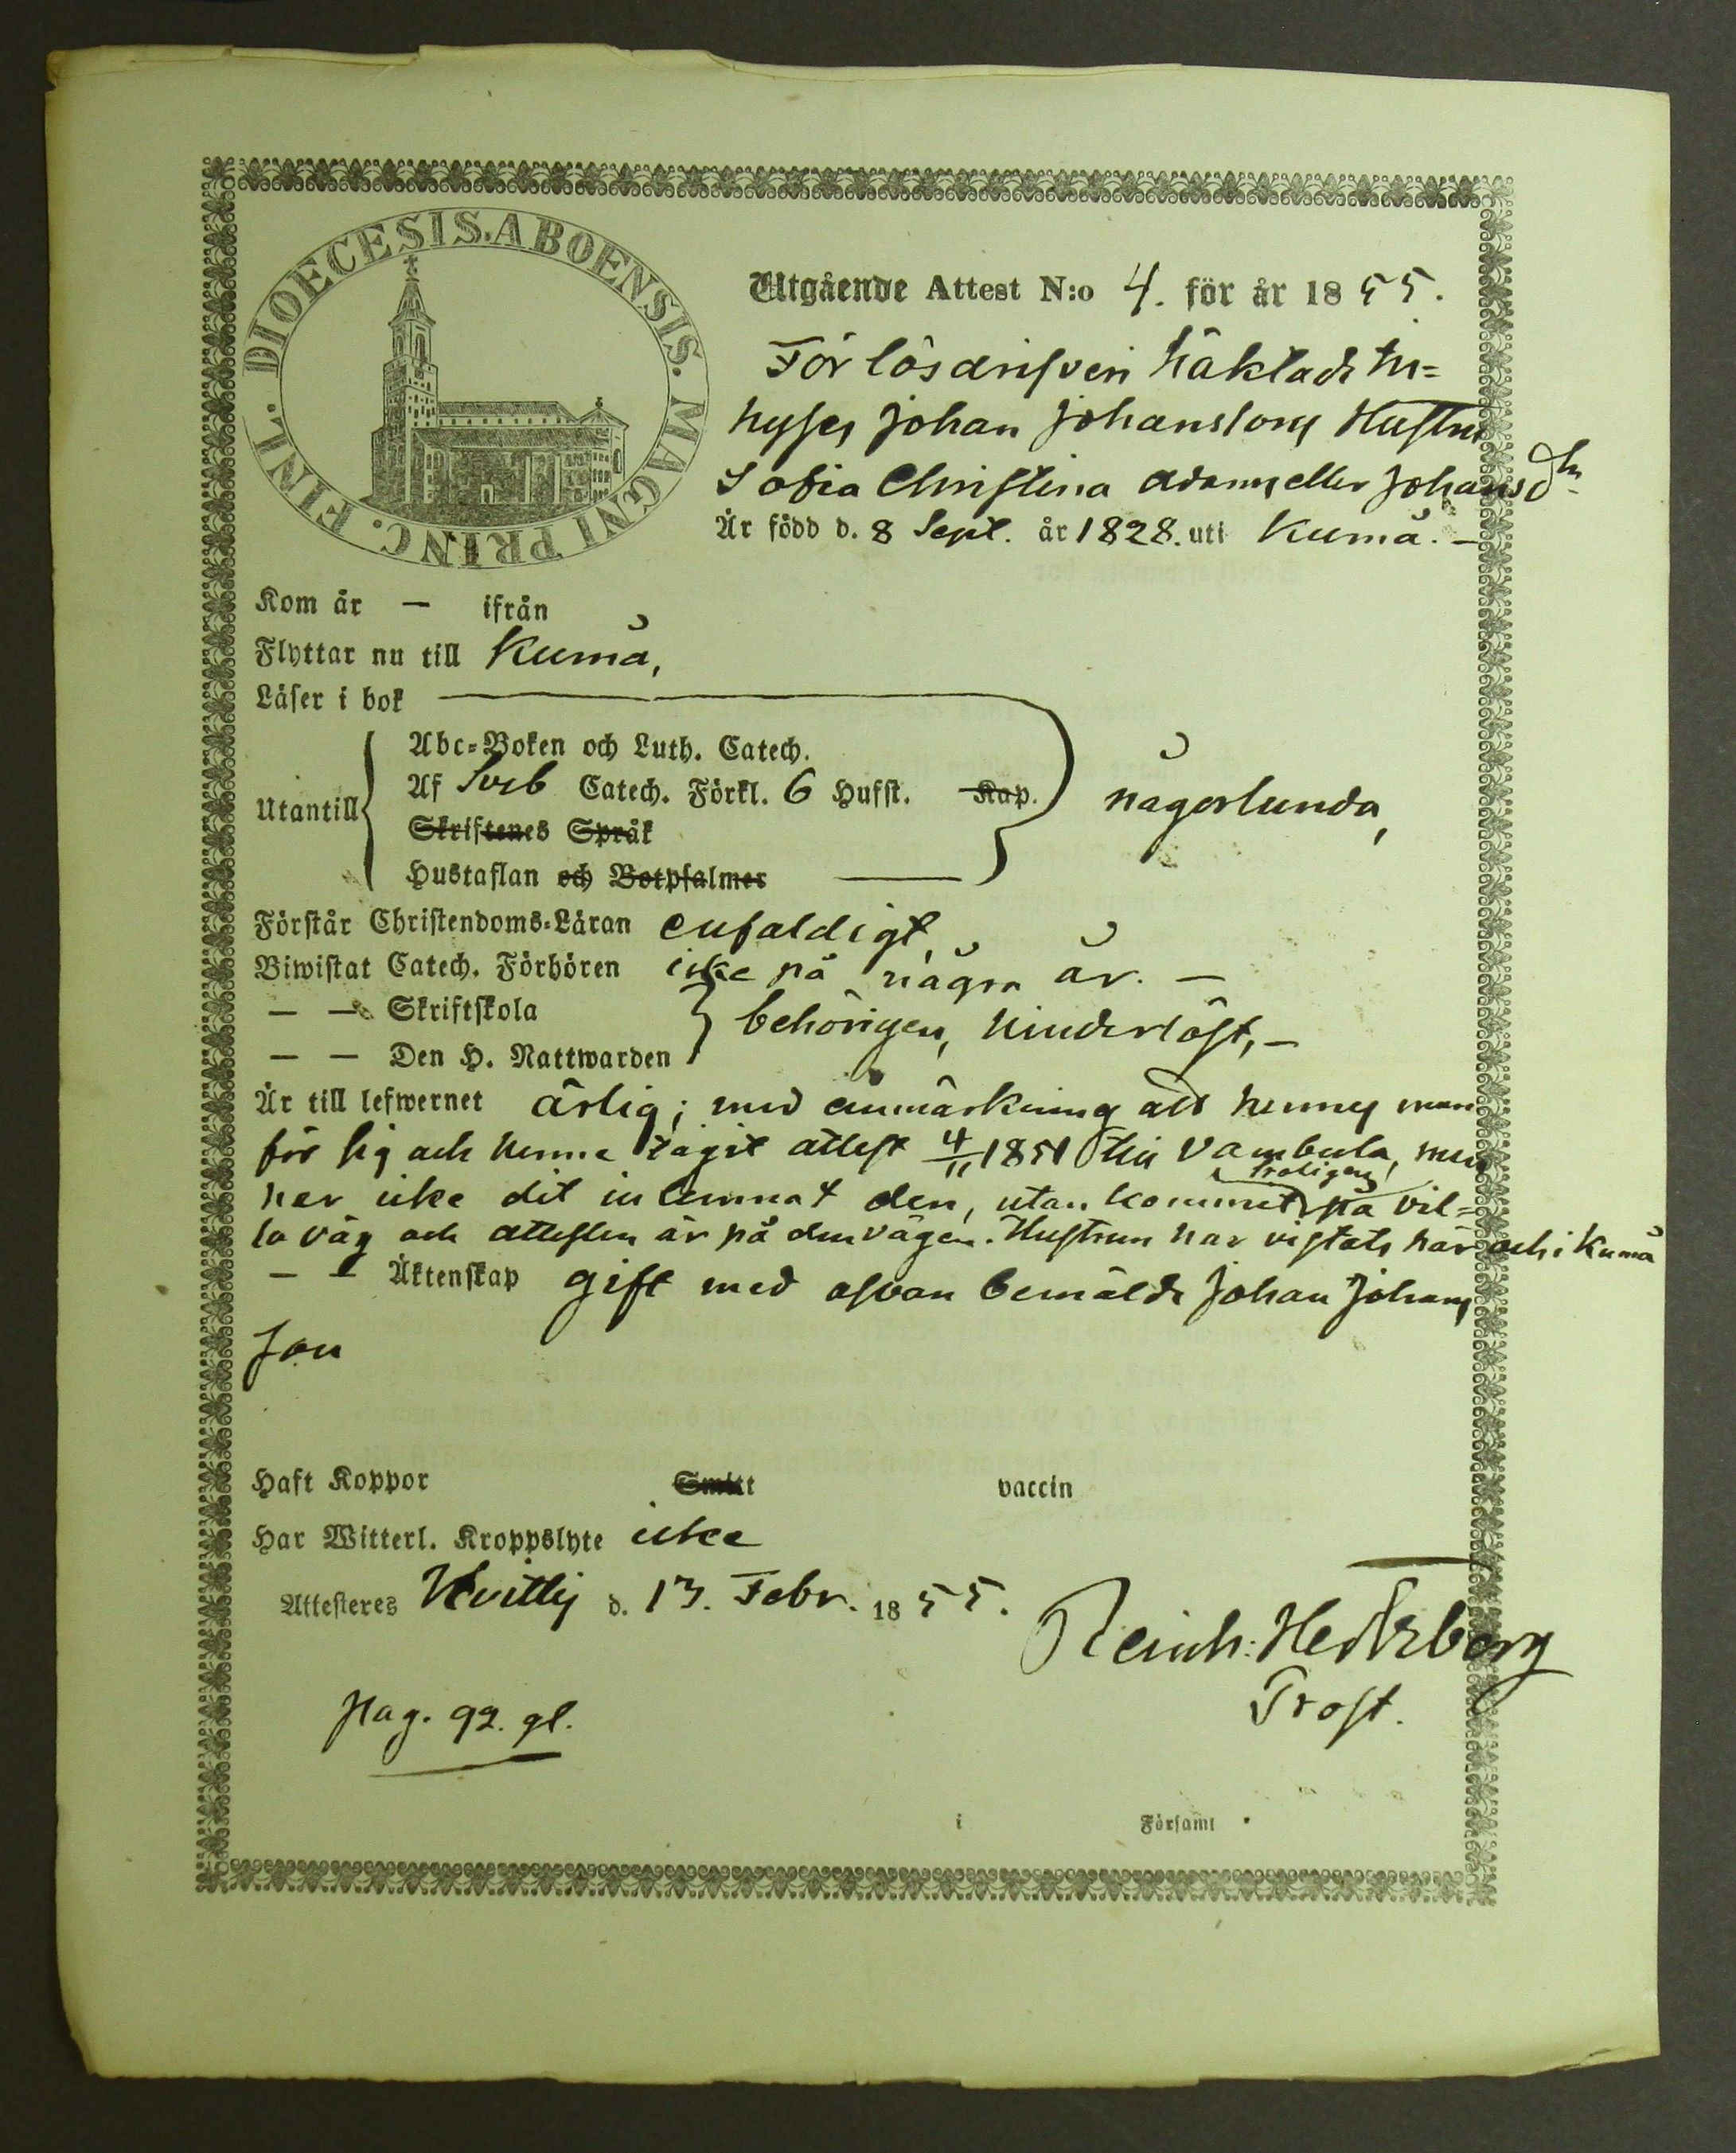 DIOECESIS. ABOENSIS. MAGNI PRINC. FINL.
Utgående Attest N:o 4. för år 1855.
För lösdrifveri häktade in=
hyses Johan Johanssons Hustru
Sofia Christina Adams eller Johansdr
Är född d. 8 Sept. år 1828. uti Kumå. –
Kom år – ifrån
Flyttar nu till Kumå,
Läser i bok
Abc=Boken och Luth. Catech.
Utantill
Af Sveb Catech. Förkl. 6 Hufst. Kap.
någorlunda,
Skriftenes Språk
Hustaflan och Botpsalmer
Förstår Christendoms=Läran enfaldigt,
Biwistat Catech. Förhören icke på några år. –
– – Skriftskola
behörigen, hinderlöst, –
– – Den H. Nattwarden
Är till lefwernet ärlig; med anmärkning att hennes man
för sig och henne tagit attest 4/11 1851 till Vambula, men
troligen
har icke dit inlemnat den, utan kommit på vil=
la väg och attesten är på den vägen. Hustrun har vistats här och i Kumå
– – Äktenskap gift med ofvan bemälde Johan Johans
son
Haft Koppor Smitt vaccin
Har Witterl. Kroppslyte icke
Attesteres Hvittis d. 13. Febr. 1855.
Reinh: Hertzberg
Prost.
pag. 92. gl.
i Församl.